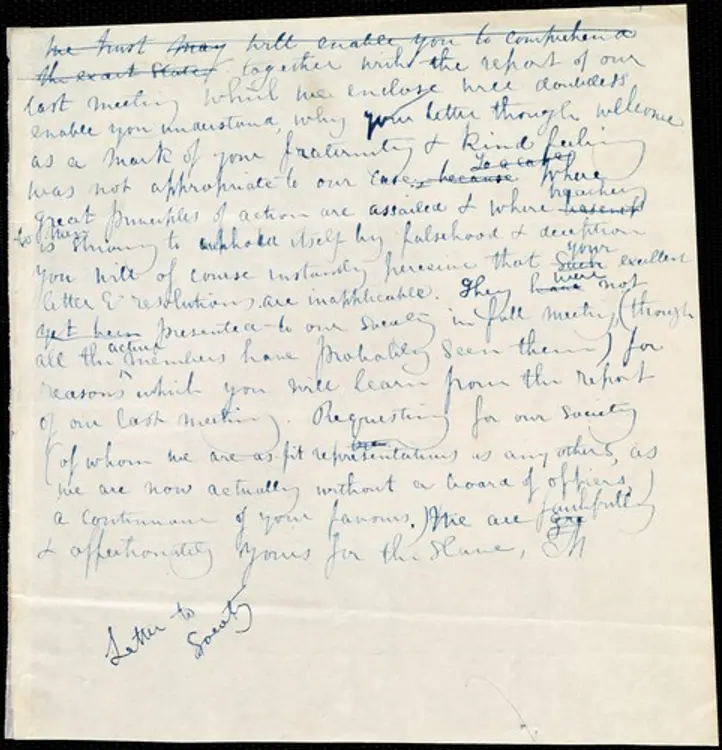 we trust may will enable you to comprehend
the exact state, together with the report of our
last meeting which we enclose will doubtless
enable you understand, why your letter though welcome
as a mark of your fraternity & kind feeling
was not appropriate to our case, because to a case Where
great principles of action are assailed & where treachery
to them is striving to uphold itself by falsehood & deception
you will of course instantly perceive that such your excellent
letter & resolutions are inapplicable. They have were not
yet been presented to our Society in full meeting, (though
all the active members have probably seen them) for
reasons which you will learn from the report
of our last meeting. Requesting for our Society
(of whom we are as fit representations as any others, as
we are now actually without a board of officers,)
a continuance of your favours, We are faithfully
& affectionately Yours for the Slave,
Letter to
Society